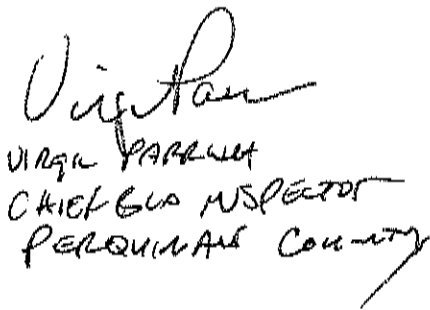 Virgil Parrish
VIRGIL PARRISH
CHIEF BLD INSPECTOR
PERQUIMANS COUNTY